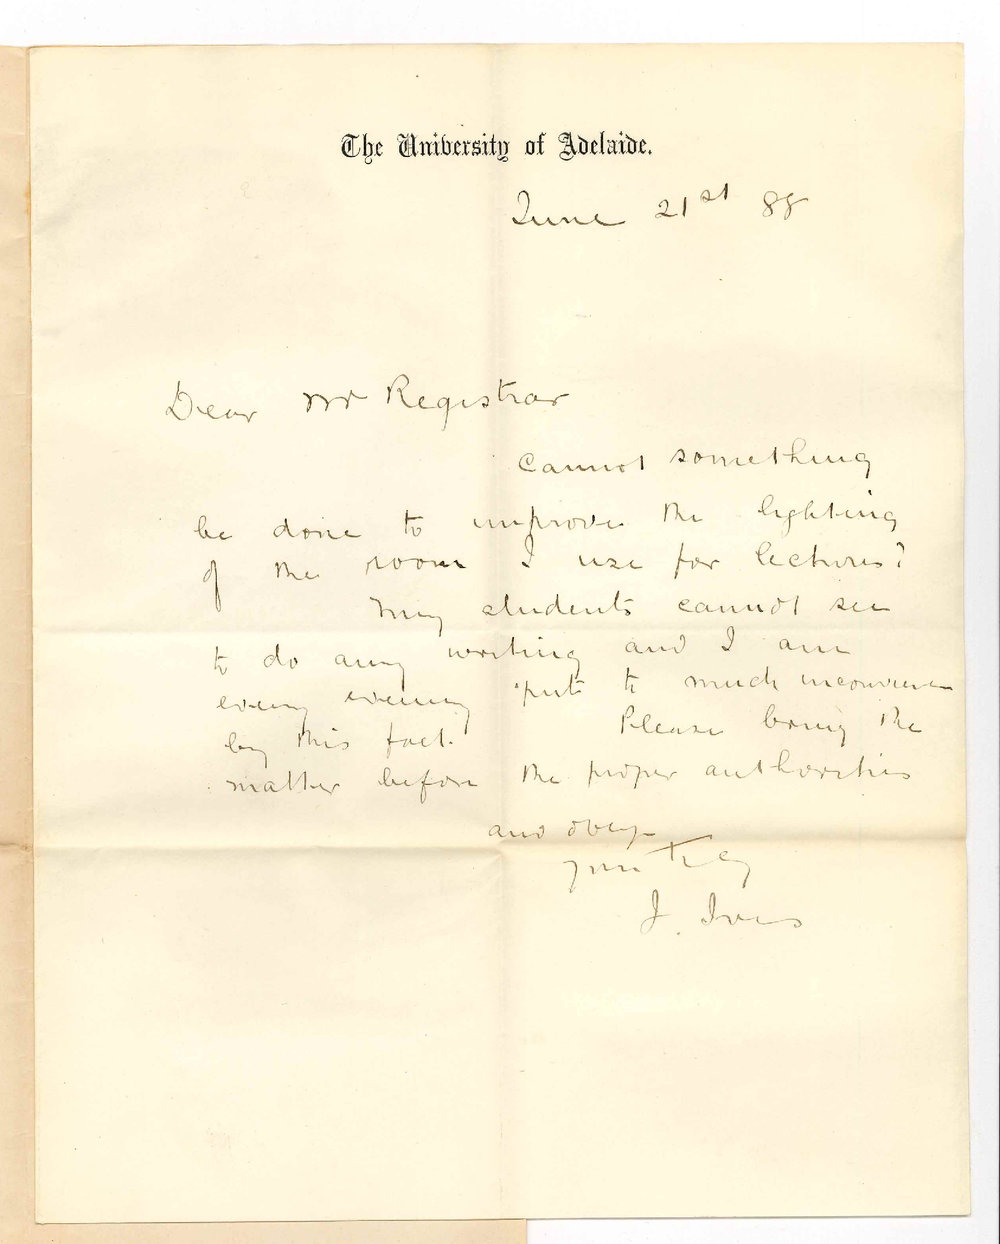 The University of Adelaide.
June 21st 88
Dear Mr Registrar
Cannot something
be done to improve the lighting
of the room I use for lectures?
My students cannot see
to do any writing and I am
every evening put to much inconvenien
by this fact. Please bring the
matter before the proper authorities
and oblige
Yours try
J. Ives